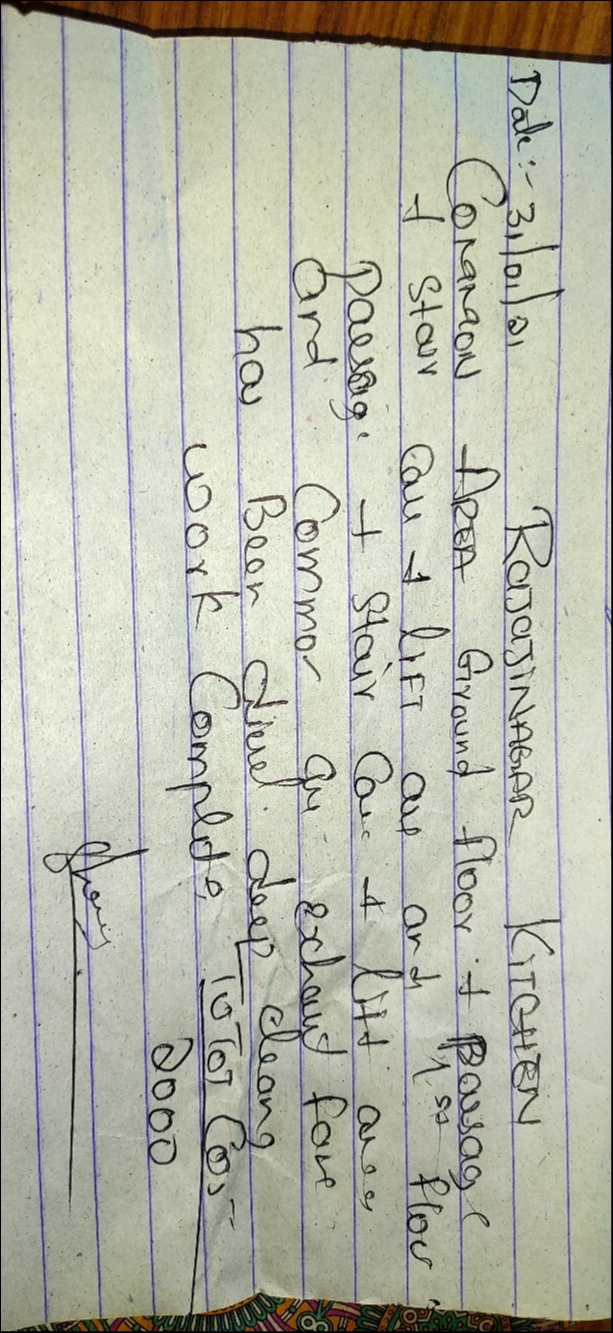 Date :- 31/01/21 RAJAJINAGAR KITCHEN
COMMON AREA Ground floor + Passage
+ Stair Cau + LIFT are and 1st floor
Passage + Stair Cau + Lift area
and Common exhaust fane
has Been deep cleang
work Complete ToTaT Cos-
2000